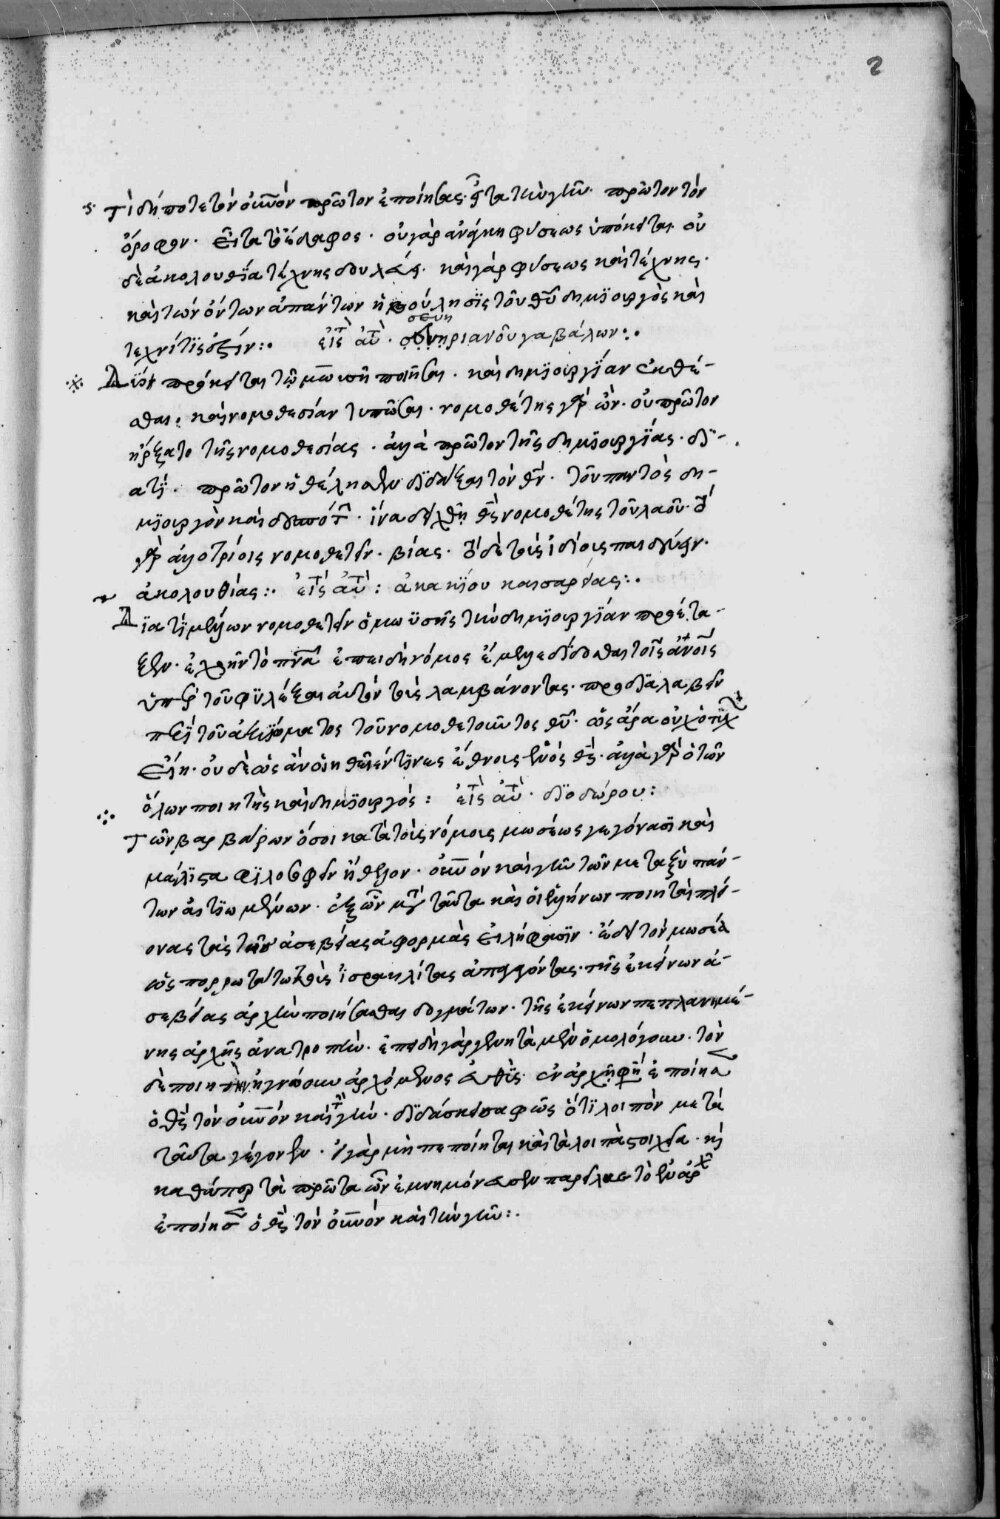 2
τί δήποτε τὸν οὐνὸν πρῶτον ἐποίησας εἶτα τὴν γῆν· πρῶτον τὸν
ὄροφον· εἶτα τὸ ἔδαφος· οὐ γὰρ ἀνάγκη φύσεως ὑπόκειται· οὐ
δὲ ἀκολουθία τέχνης δουλεύει· καὶ γὰρ φύσεως καὶ τέχνης·
καὶ τῶν ὄντων ἁπάντων ἡ βούλησις τοῦ θυ δημιουργὸς καὶ
τεχνίτις ἐστίν:· εἰς τὸ αὐτὸ· σευηριανοῦ γαβάλων:·
Διὸ πρόκειται τῷ μωυσῆ ποιῆσαι· καὶ δημιουργίαν ἐκθέ-
σθαι· καὶ νομοθεσίαν τυπῶσαι· νομοθέτης γὰρ ὢν· οὐ πρῶτον
ἤρξατο τῆς νομοθεσίας· ἀλλὰ πρῶτον τῆς δημιουργίας· δι-
ατί· πρῶτον ἠθέλησεν διδάξαι τὸν θν· τοῦ παντὸς δη-
μιουργὸν καὶ δεσπότην· ἵνα δειχθῇ θς νομοθέτης τοῦ λαοῦ· τὸ
γὰρ ἀλλοτρίοις νομοθετεῖν· βίας· τὸ δὲ τοὺς ἰδίους παιδεύειν·
ἀκολουθίας:· εἰς τὸ αὐτὸ: ἀκακίου καισαρείας:·
Διατί μέλλων νομοθετεῖν ὁ μωυσῆς τὴν δημιουργίαν προέτα-
ξεν· ἐχρῆν τὸ πνα ἐπειδὴ νόμος ἔμελλε δίδοσθαι τοῖς ἀνοις
ὑπὲρ τοῦ φυλάξαι αὐτὸν τοὺς λαμβάνοντας· προδιαλαβεῖν
περὶ τοῦ ἀξιώματος τοῦ νομοθετοῦντος θυ· ὡς ἄρα οὐχ ὁ τυχὼν
εἴη· οὐδὲ ὡς ἂν οἰηθεῖέν τινες ἔθνους ἑνὸς θς· ἀλλὰ γὰρ ὁ τῶν
ὅλων ποιητὴς καὶ δημιουργός: εἰς τὸ αὐτὸ· διοδώρου:
Τῶν βαρβάρων ὅσοι κατὰ τοὺς νόμους μωσέως γεγόνασι καὶ
μάλιστα φιλοσοφεῖν ἤθελον· οὐνὸν καὶ γῆν τῶν μεταξὺ πάν-
των αἰτίων μέλλων· ἐξ ὧν μετὰ ταῦτα καὶ οἱ ἑλλήνων ποιηταὶ πλεί-
ονας τὰς τῶν ἀσεβείας ἀφορμὰς εἰλήφασιν· ἔδει τὸν μωσέα
ὡς πορρωτάτω τοὺς ἰσραηλίτας ἀπάγοντας· τῆς ἐκείνων ἀ-
σεβείας ἀρχὴν ποιήσασθαι δογμάτων· τῆς ἐκείνων πεπλανημέ-
νης ἀρχῆς ἀνατροπήν· ἐπειδὴ γὰρ γενητὰ μὲν ὁμολόγουν· τὸν
δὲ ποιητὴν ἠγνόουν ἀρχόμενος εὐθὺς· ἐν ἀρχῇ φησὶ ἐποίησεν
ὁ θς τὸν οὐνὸν καὶ τὴν γῆν· διδάσκει σαφῶς ὅτι λοιπὸν μετὰ
ταῦτα γέγονεν· εἰ γὰρ μὴ πεποίηται καὶ τὰ λοιπὰ στοιχεῖα· καὶ
καθάπερ τὰ πρῶτα ὧν ἐμνημόνευσεν παρεῖλκε τὸ ἐν ἀρχῇ
ἐποίησεν ὁ θς τὸν οὐνὸν καὶ τὴν γῆν:·